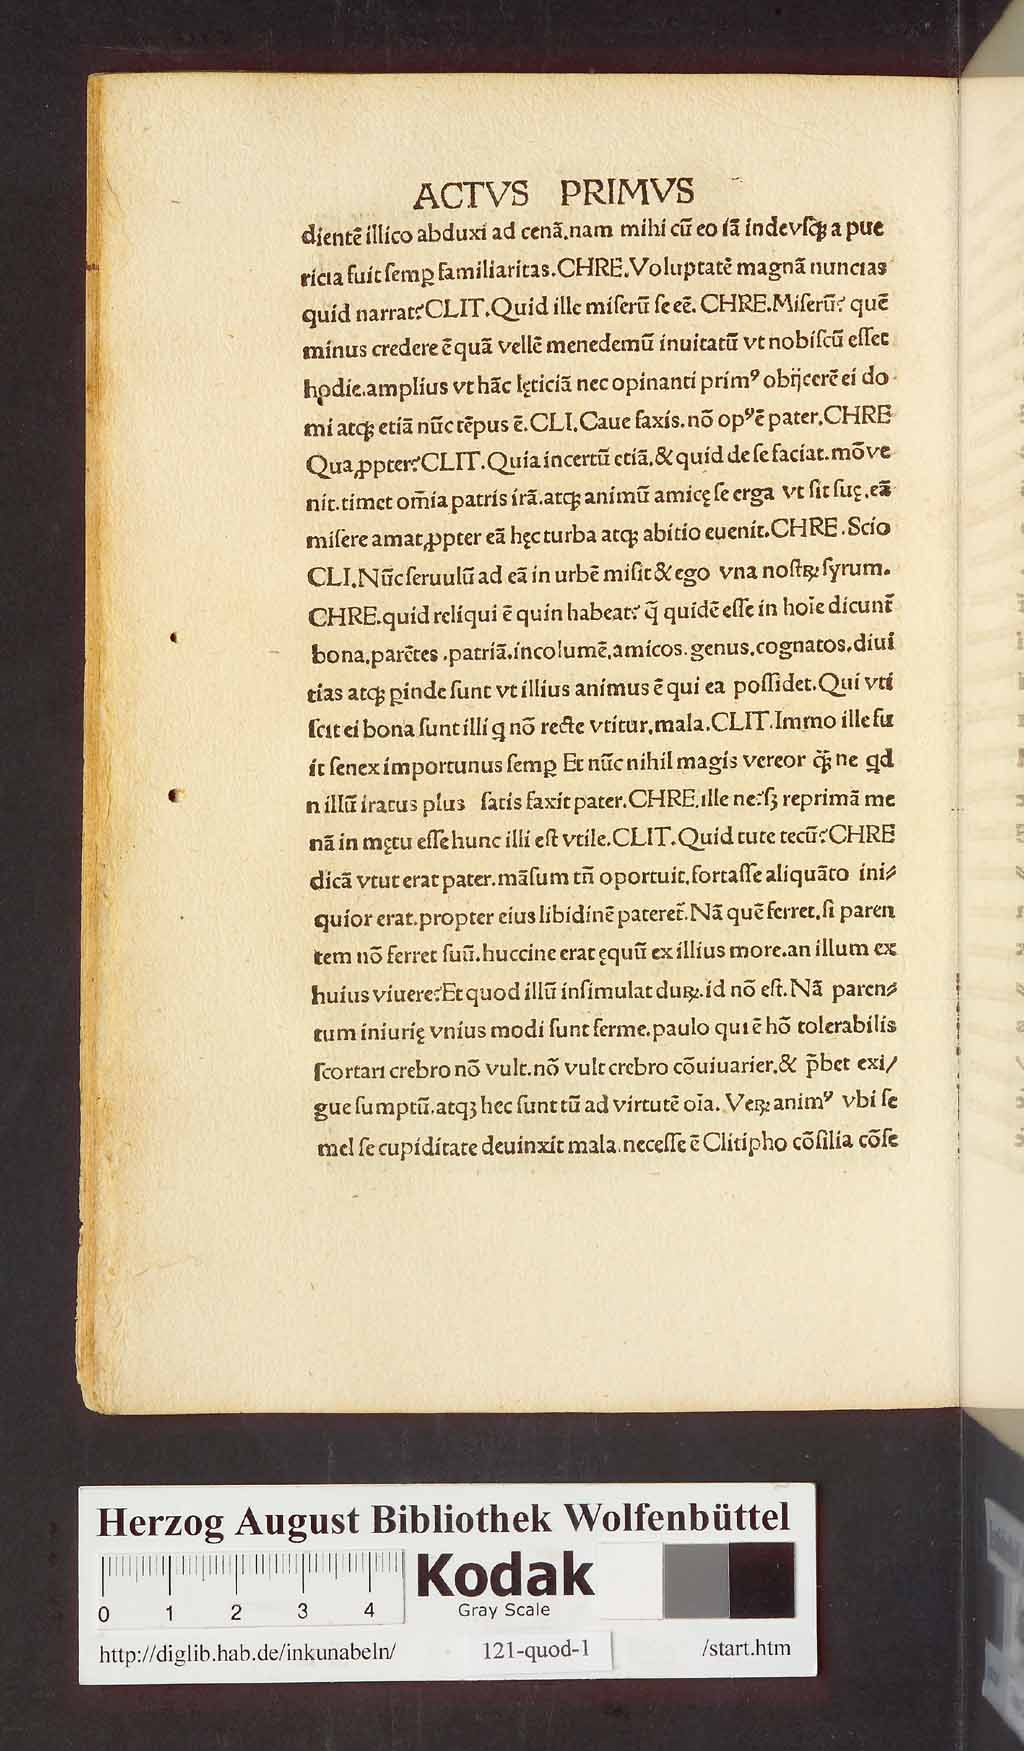 ACTVS PRIMVS
dientē illico abduxi ad cenā.nam mihi cū eo iā indevſqꝫ a pue
ricia fuit ſemꝑ familiaritas.CHRE.Voluptatē magnā nuncias
quid narrat?CLIT.Quid ille miſerū ſe eē. CHRE.Miſerū? quē
minus credere ē quā vellē menedemū inuitatū vt nobiſcū eſſet
hodie.amplius vt hāc lęticiā nec opinanti primꝰ obijcerē ei do
mi atqꝫ etiā nūc tēpus ē.CLI.Caue faxis.nō opꝰ ē pater.CHRE
Qua ꝓpter?CLIT.Quia incertū etiā.& quid de ſe faciat.mō ve
nit.timet om̄ia patris irā.atqꝫ animū amicę ſe erga vt ſit ſuę.eā
miſere amat ꝓpter eā hęc turba atqꝫ abitio euenit.CHRE.Scio
CLI.Nūc ſeruulū ad eā in urbē miſit & ego vna noſtꝝ ſyrum.
CHRE.quid reliqui ē quin habeat? q̄ quidē eſſe in hoīe dicunt̄
bona.parētes.patriā.incolumē.amicos.genus.cognatos.diui
tias atqꝫ ꝑinde ſunt vt illius animus ē qui ea poſſidet.Qui vti
ſcit ei bona ſunt illi q nō recte vtitur.mala.CLIT.Immo ille fu
it ſenex importunus ſemꝑ Et nūc nihil magis vereor q̄ꝫ ne qd
n illū iratus plus ſatis faxit pater.CHRE.ille ne?ſꝫ reprimā me
nā in mętu eſſe hunc illi eſt vtile.CLIT.Quid tute tecū?CHRE
dicā vtut erat pater.māſum tn̄ oportuit.fortaſſe aliquāto ini⸗
quior erat.propter eius libidinē pateret̄.Nā quē ferret.ſi paren
tem nō ferret ſuū.huccine erat ęquū ex illius more.an illum ex
huius viuere?Et quod illū inſimulat duꝝ.id nō eſt.Nā paren⸗
tum iniurię vnius modi ſunt ferme.paulo qui ē hō tolerabilis
ſcortari crebro nō vult.nō vult crebro cōuiuarier.& p̄bet exi/
gue ſumptū.atqꝫ hec ſunt tū ad virtutē oīa. Veꝝ animꝰ vbi ſe
mel ſe cupiditate deuinxit mala.neceſſe ē Clitipho cōſilia cōſe
Herzog August Bibliothek Wolfenbüttel
0 1 2 3 4
Kodak
Gray Scale
http://diglib.hab.de/inkunabeln/ 121-quod-1 /start.htm